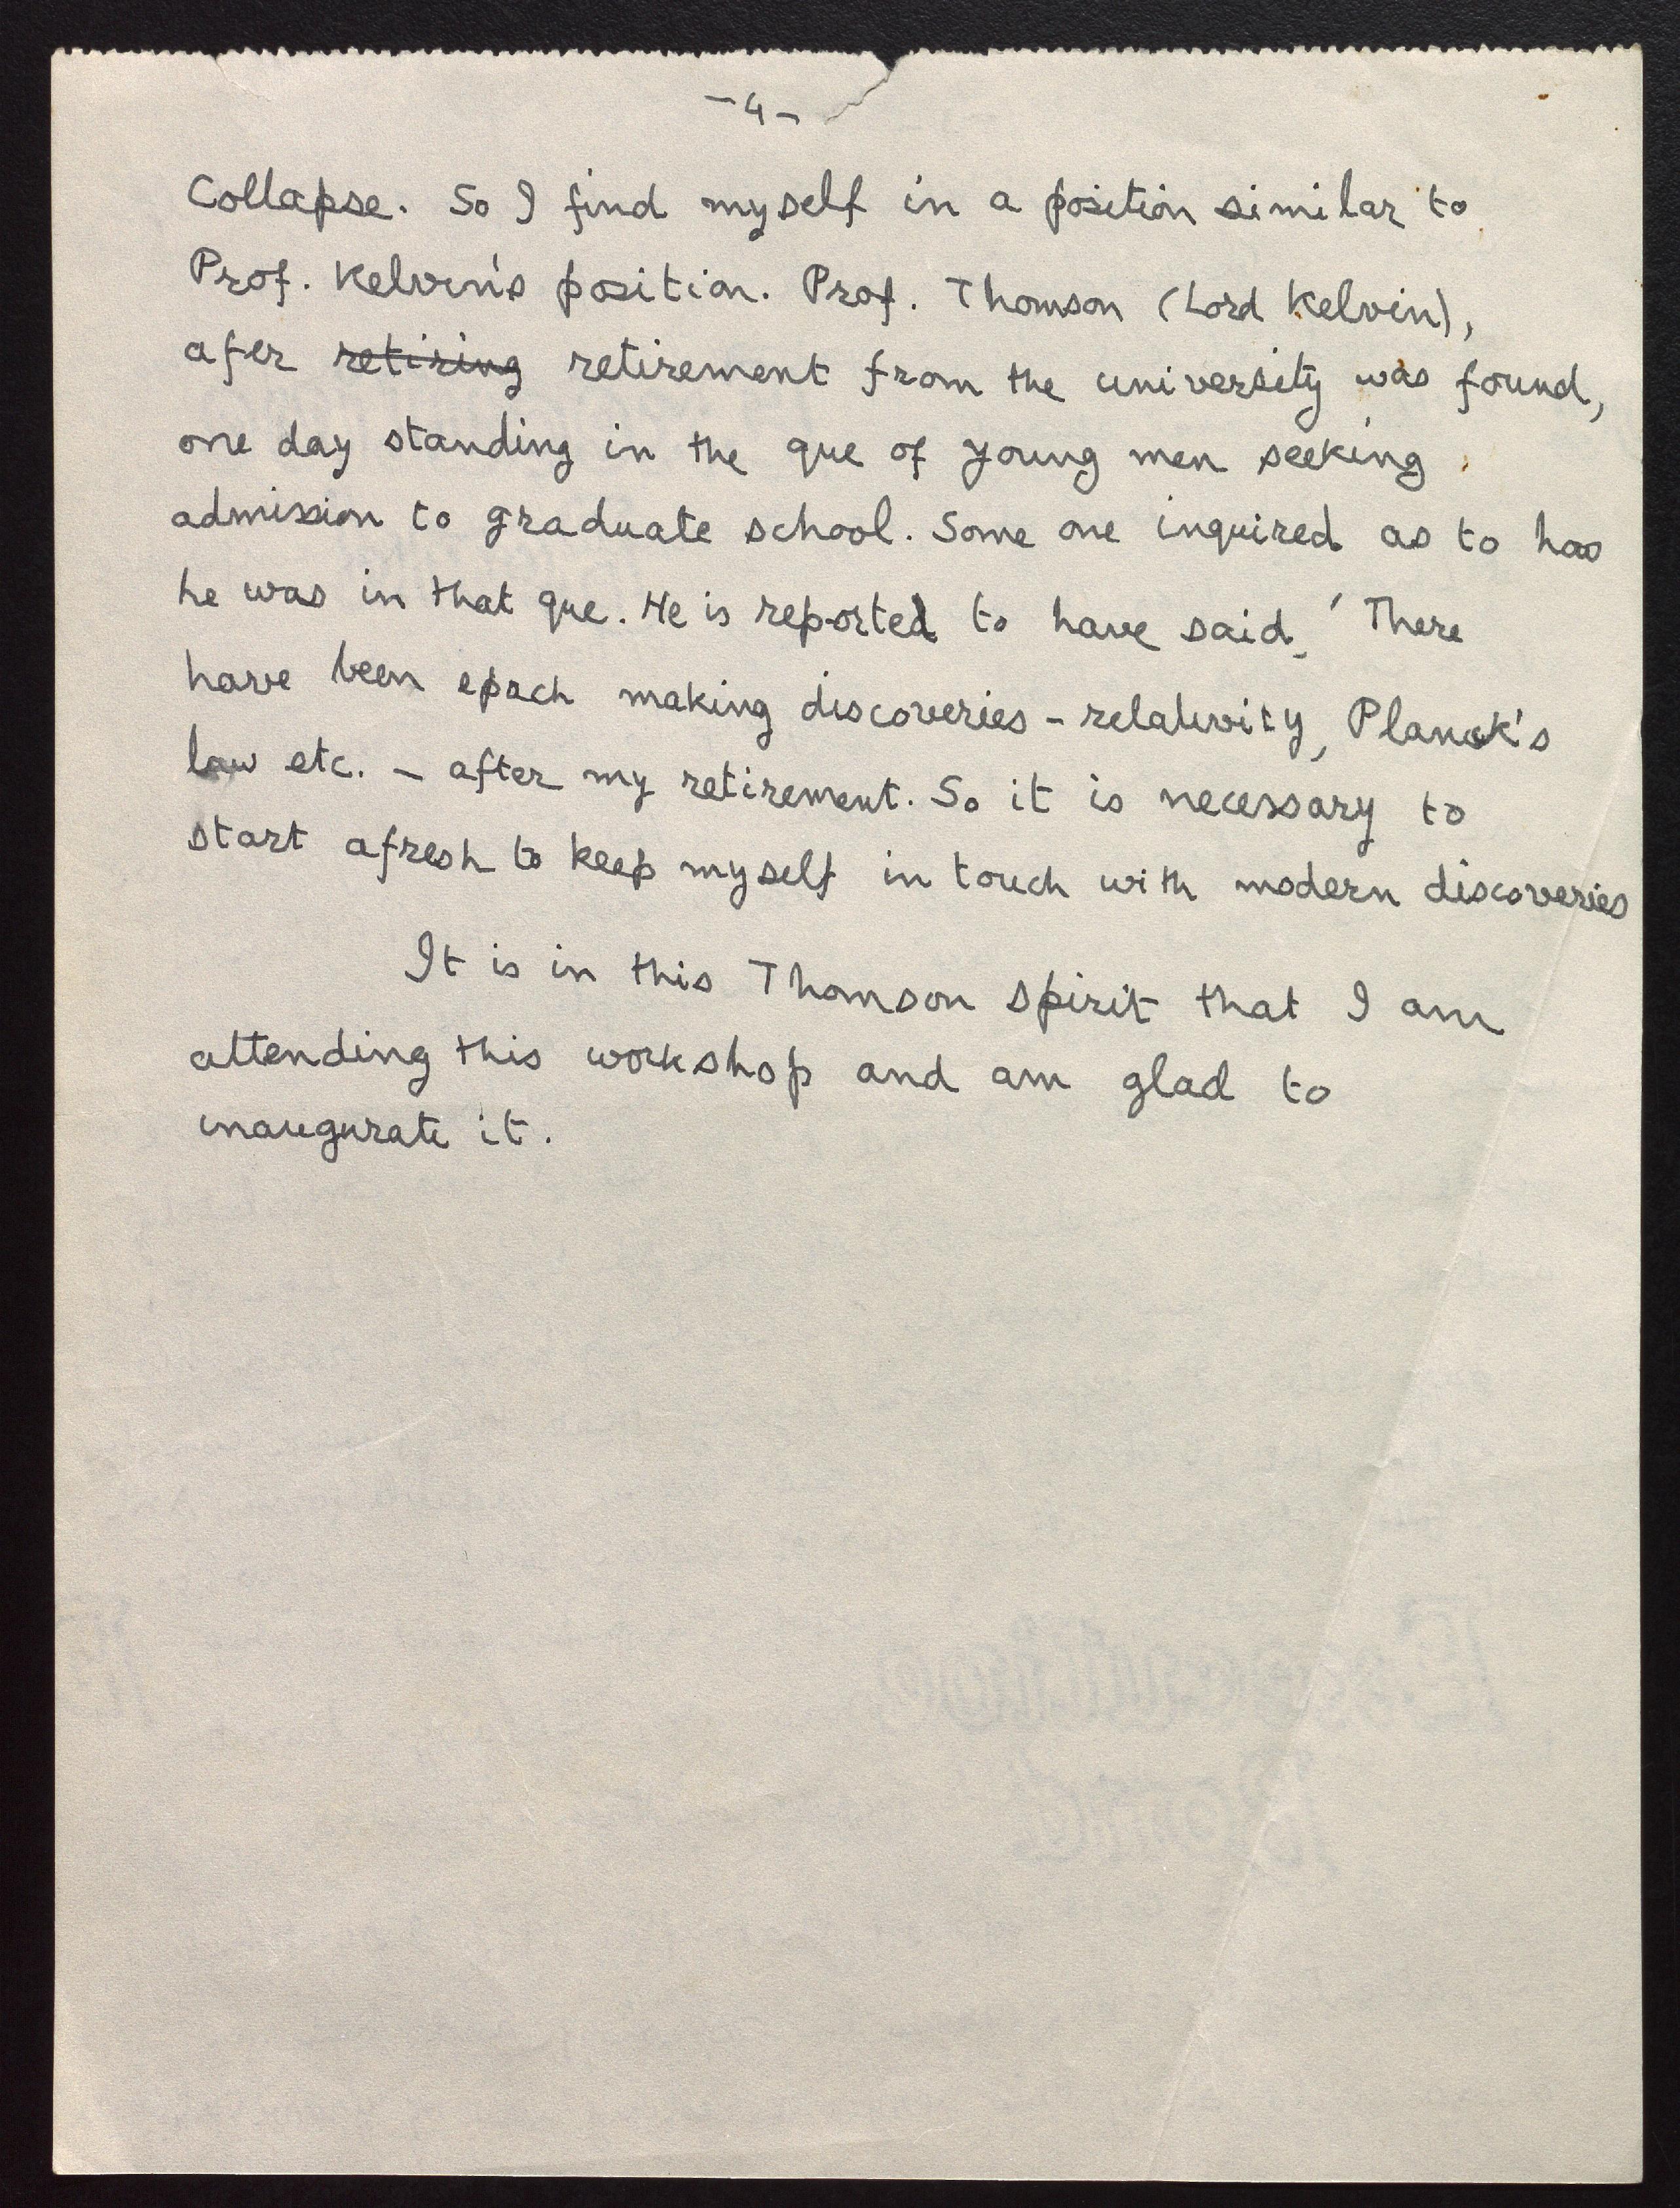 -4-
Collapse. So I find myself in a position similar to
Prof. Kelvin's position. Prof. Thomson (Lord Kelvin),
afer retiring retirement from the university was found,
one day standing in the que of young men seeking
admission to graduate school. Some one inquired as to has
he was in that que. He is reported to have said, 'There
have been epoch making discoveries - relativity, Planck's
law etc. - after my retirement. So it is necessary to
start afresh to keep myself in touch with modern discoveries
It is in this Thomson spirit that I am
attending this workshop and am glad to
inaugurate it.